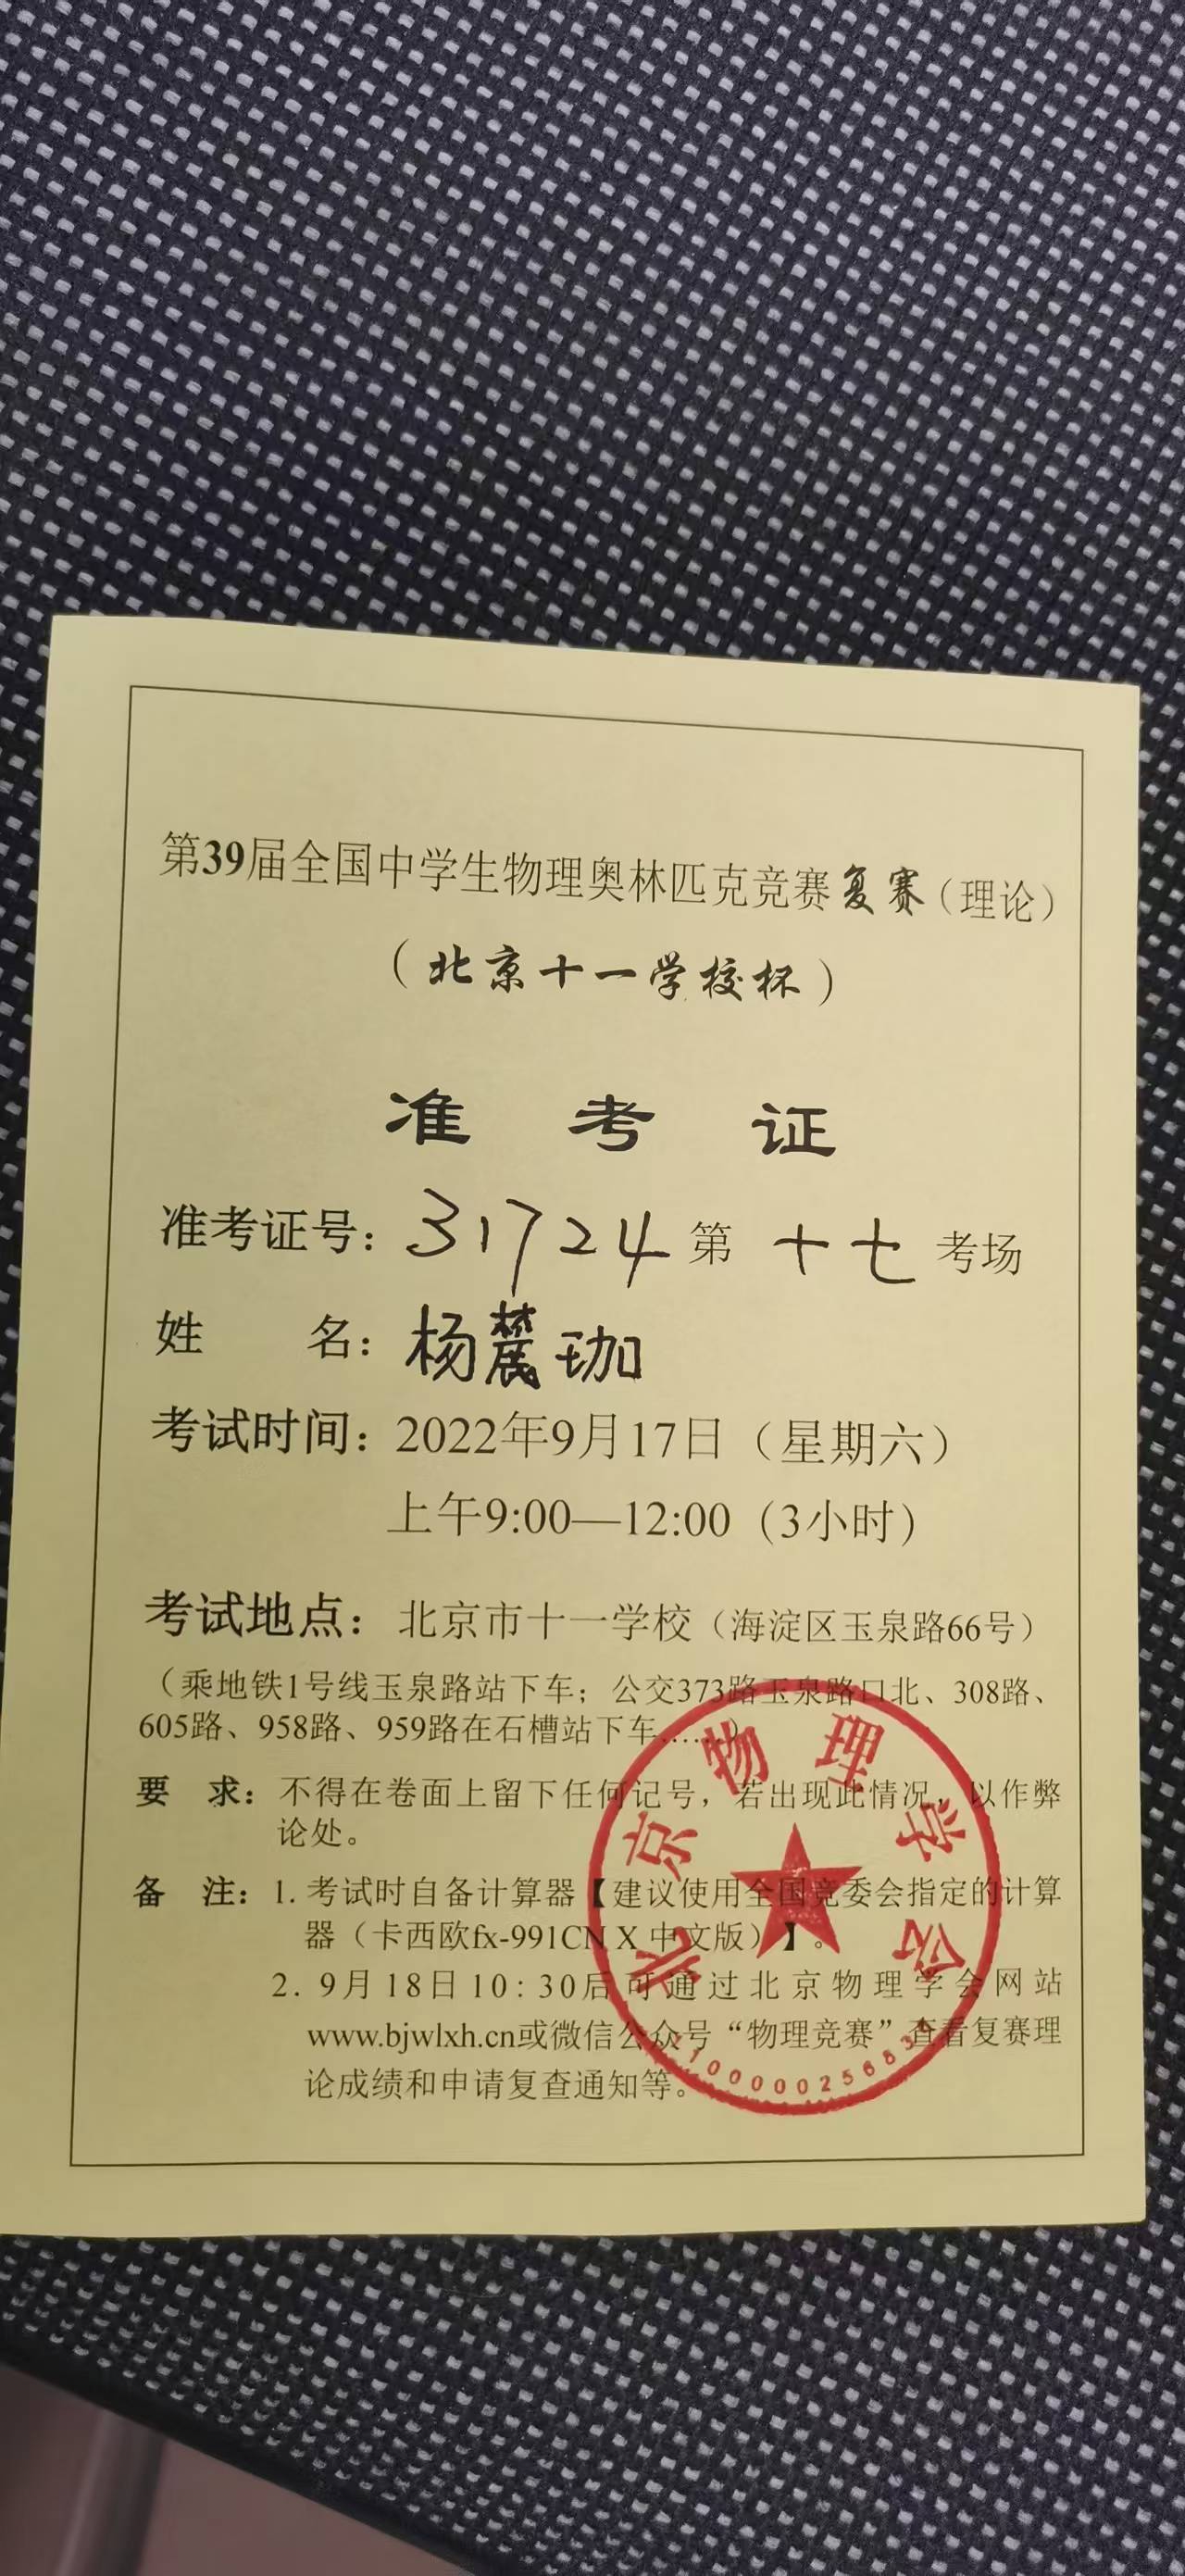 第39届全国中学生物理奥林匹克竞赛复赛（理论）
（北京十一学校杯）
准 考 证
准考证号：31724 第 十七 考场
姓 名：杨麓珈
考试时间：2022年9月17日（星期六）
上午9:00—12:00（3小时）
考试地点：北京市十一学校（海淀区玉泉路66号）
（乘地铁1号线玉泉路站下车；公交373路玉泉路口北、308路、
605路、958路、959路在石槽站下车……）
要 求：不得在卷面上留下任何记号，若出现此情况，以作弊
论处。
备 注：1. 考试时自备计算器【建议使用全国竞委会指定的计算
器（卡西欧fx-991CN X 中文版）】。
2. 9月18日10:30后可通过北京物理学会网站
www.bjwlxh.cn或微信公众号“物理竞赛”查看复赛理
论成绩和申请复查通知等。
北京物理学会